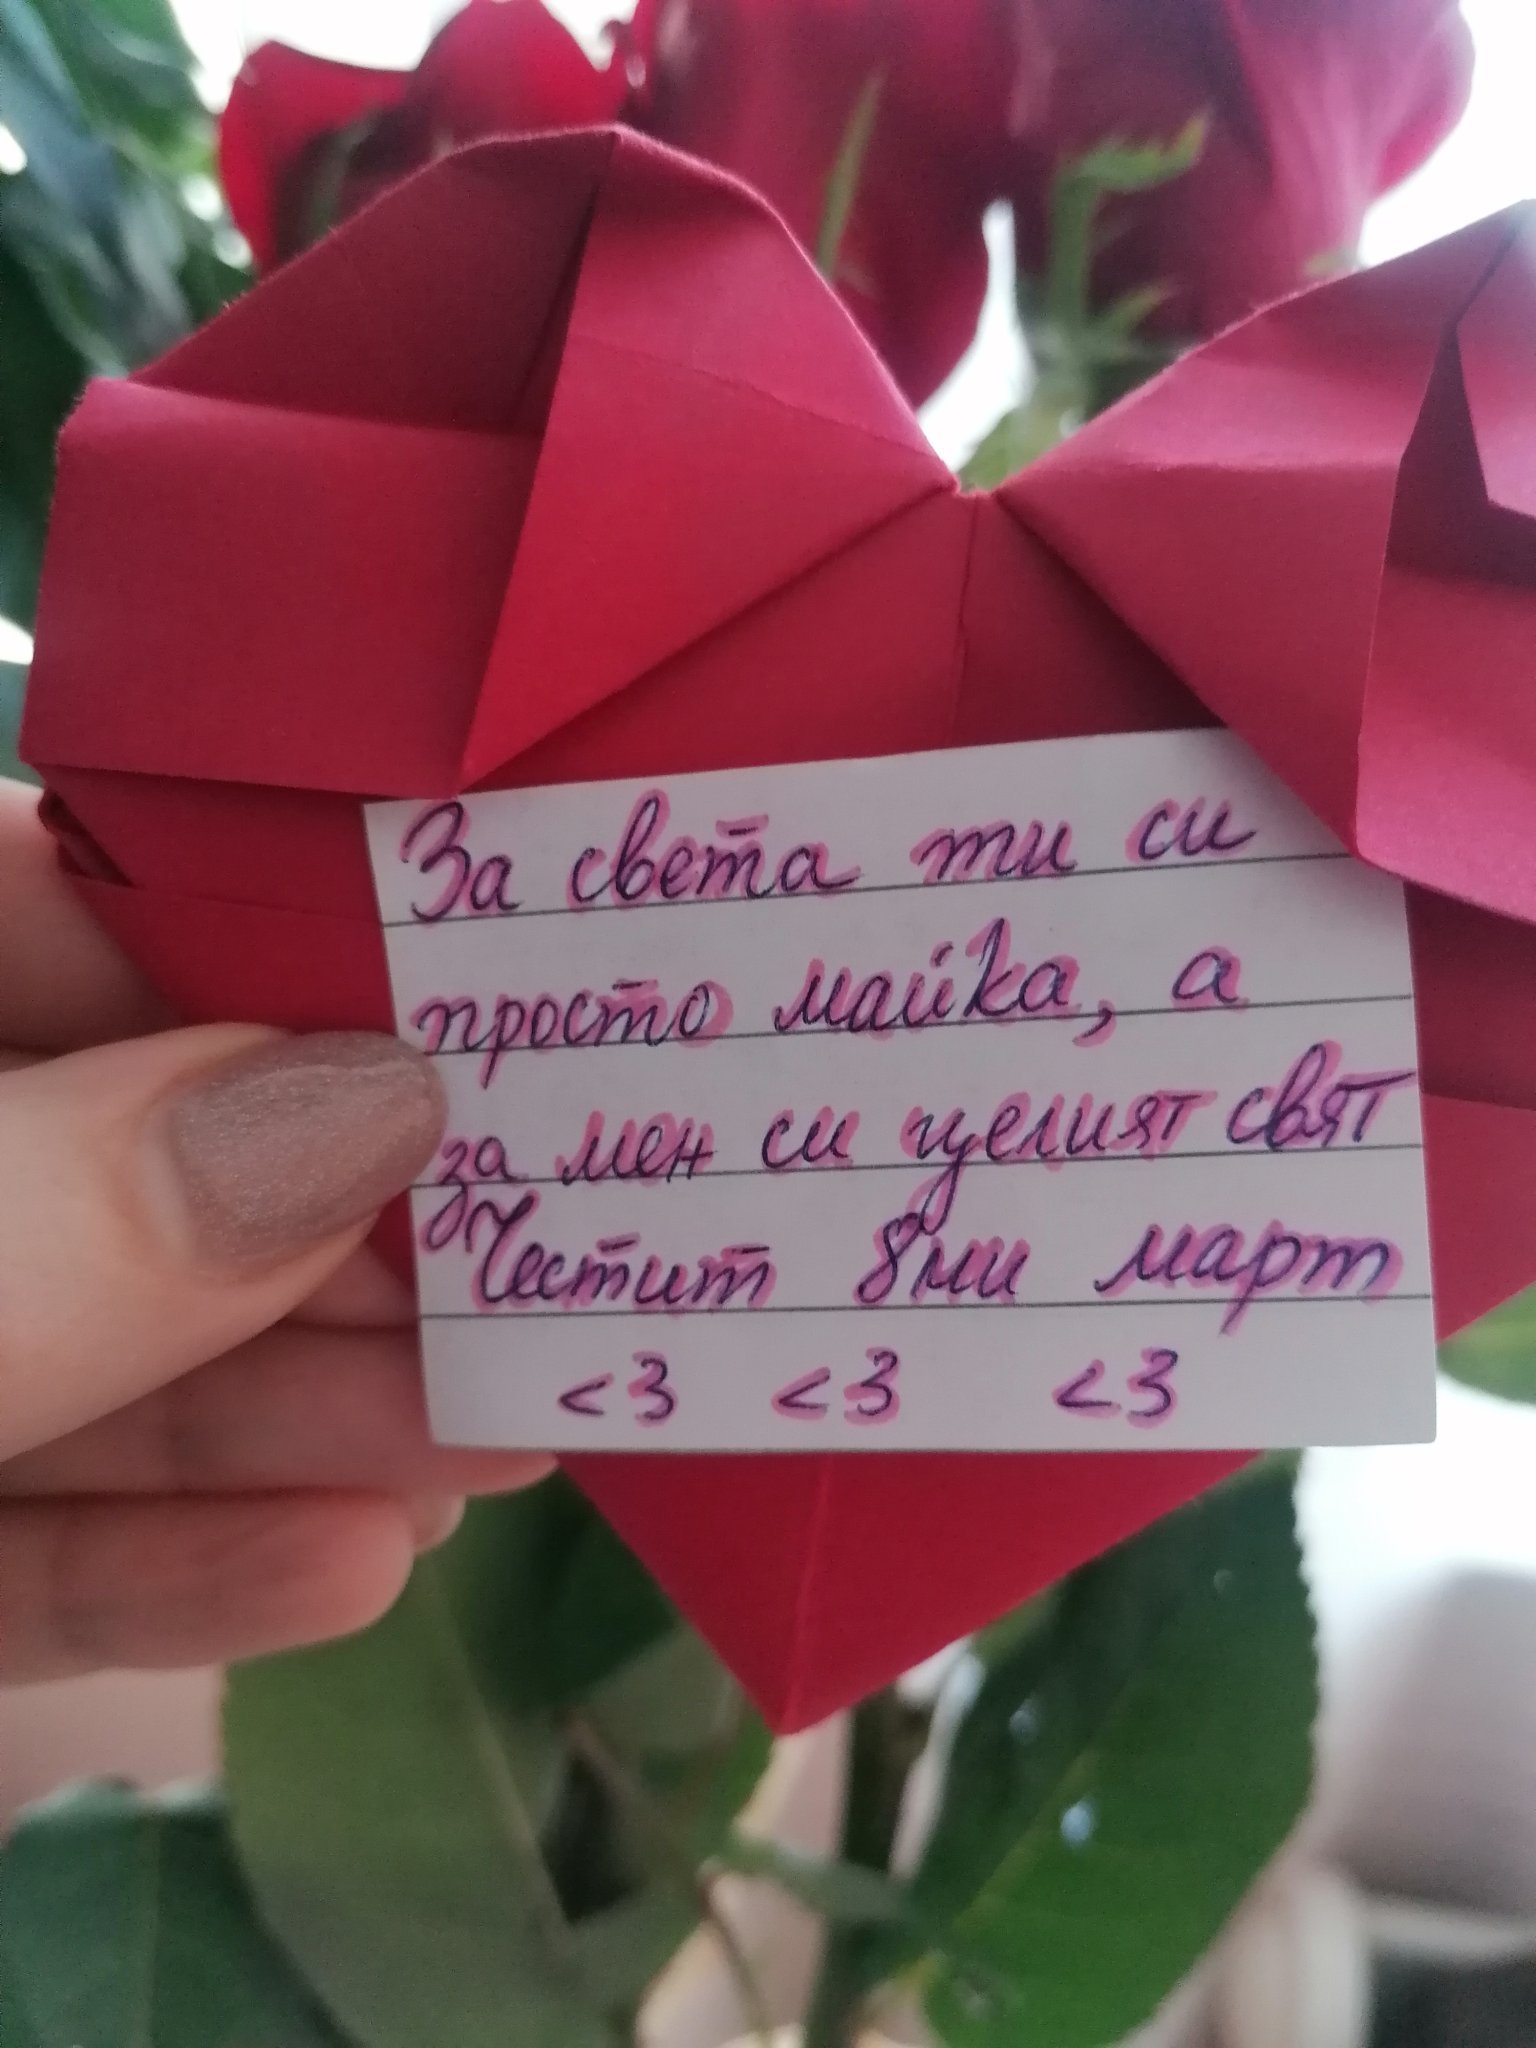 За света ти си
просто майка, а
за мен си целият свят
Честит 8ми март
<3 <3 <3